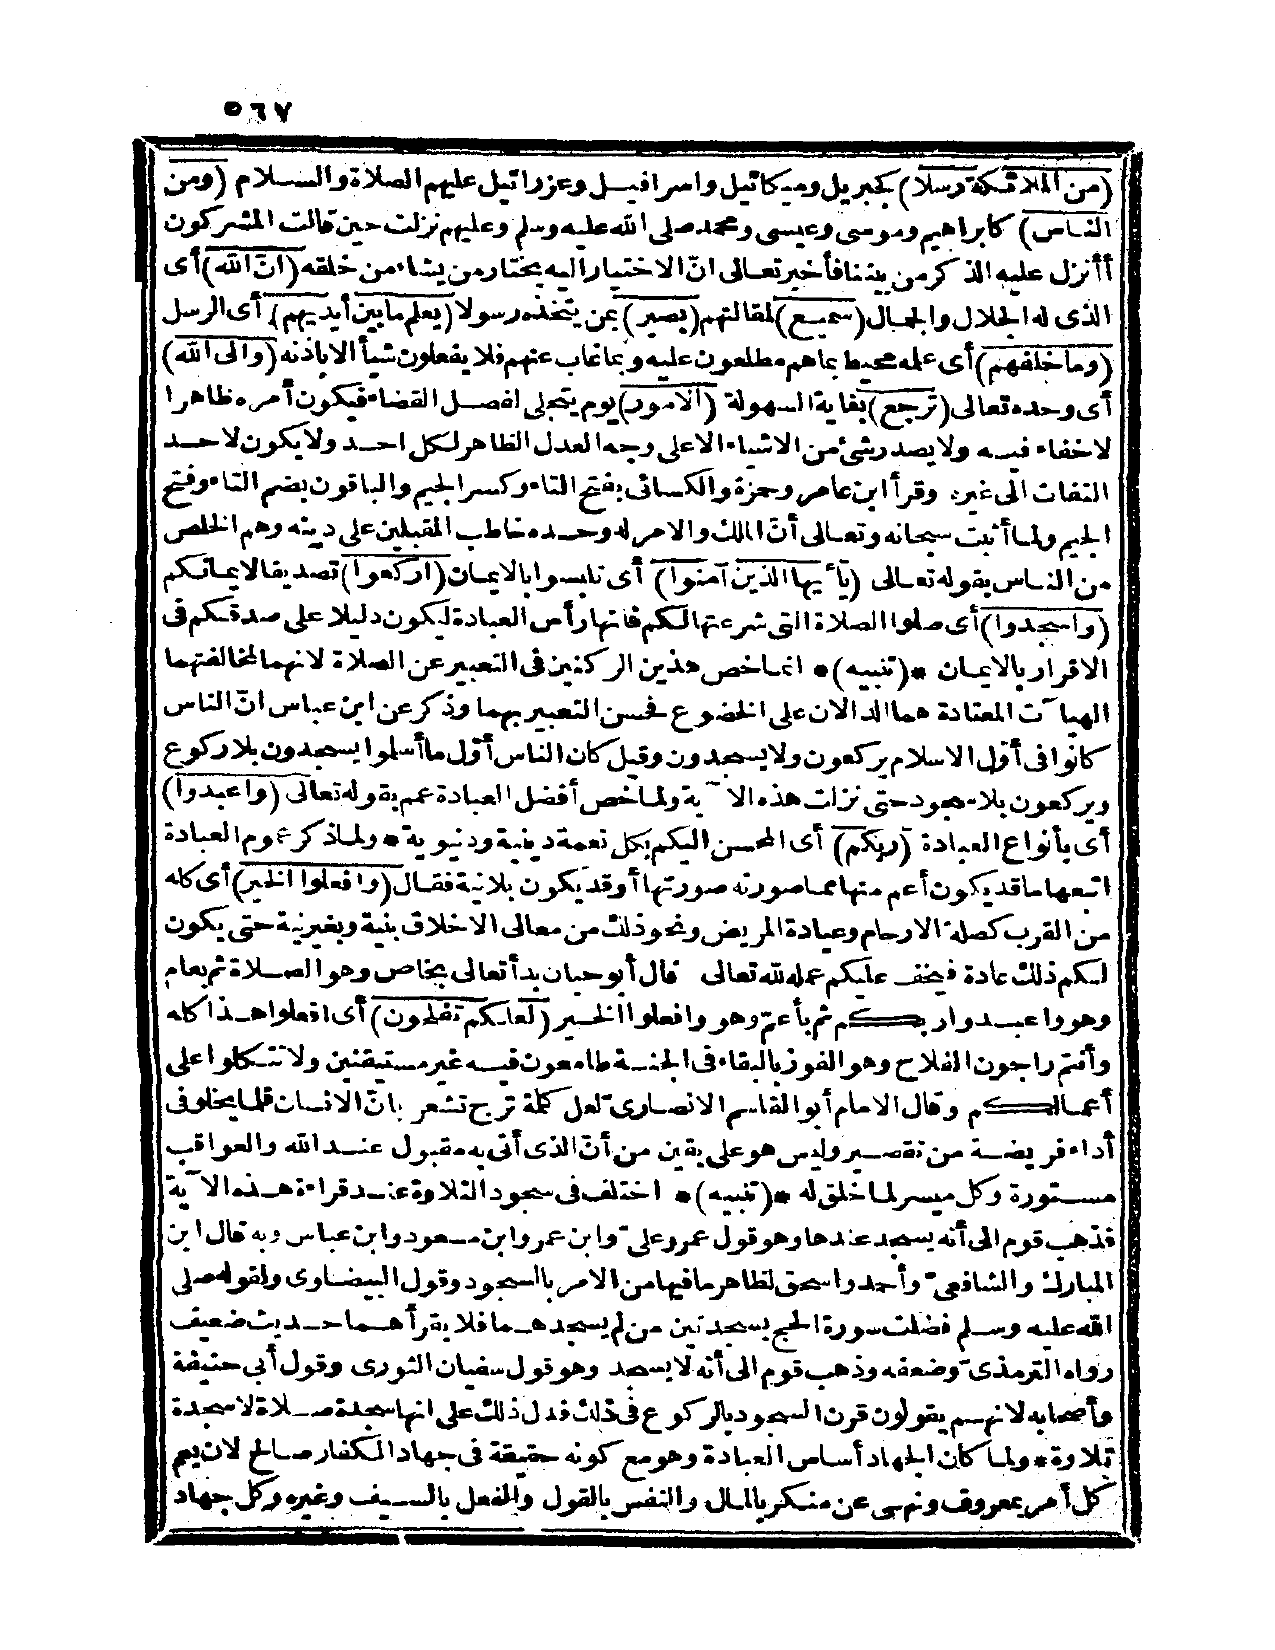 ٥٦٧
(من الملائكة رسلا) كجبريل وميكائيل واسرافيل وعزرائيل عليهم الصلاة والسلام (ومن
الناس) كابراهيم وموسى وعيسى ومحمد صلى الله عليه وسلم وعليهم نزلت حين قالت المشركون
أأنزل عليه الذكر من بيننا فأخبر تعالى انّ الاختيار اليه يختار من يشاء من خلقه (انّ الله) أى
الذى له الجلال والجمال (سميع) لمقالتهم (بصير) بمن يتخذه رسولا (يعلم ما بين أيديهم) أى الرسل
(وما خلفهم) أى علمه محيط بما هم مطلعون عليه وبما غاب عنهم فلا يفعلون شيأ الا باذنه (والى الله)
أى وحده تعالى (ترجع) بغاية السهولة (الامور) يوم يتجلى لفصل القضاء فيكون أمره ظاهرا
لا خفاء فيه ولا يصدر شئ من الاشياء الا على وجه العدل الظاهر لكل احد ولا يكون لاحد
التفات الى غيره وقرأ ابن عامر وحمزة والكسائى بفتح التاء وكسر الجيم والباقون بضم التاء وفتح
الجيم ولما أثبت سبحانه وتعالى أنّ الملك والامر له وحده خاطب المقبلين على دينه وهم الخلص
من الناس بقوله تعالى (يا ٔيها الذين آمنوا) أى تلبسوا بالايمان (اركعوا) تصديقا لايمانكم
(واسجدوا) أى صلوا الصلاة التى شرعتها لكم فانها رأس العبادة ليكون دليلا على صدقكم فى
الاقرار بالايمان *(تنبيه)* انما خص هذين الركنين فى التعبير عن الصلاة لانهما لمخالفتهما
الهيآت المعتادة هما الدالان على الخضوع فحسن التعبير بهما وذكر عن ابن عباس انّ الناس
كانوا فى أوّل الاسلام يركعون ولا يسجدون وقيل كان الناس أوّل ما أسلموا يسجدون بلا ركوع
ويركعون بلا سجود حتى نزلت هذه الآية ولما خص أفضل العبادة عم بقوله تعالى (واعبدوا)
أى بأنواع العبادة (ربكم) أى المحسن اليكم بكل نعمة دينية ودنيوية * ولما ذكر عموم العبادة
اتبعها ما قد يكون أعم منها مما صورته صورتها أو قد يكون بلا نية فقال (وافعلوا الخير) أى كله
من القرب كصلة الارحام وعيادة المريض ونحو ذلك من معالى الاخلاق بنية وبغير نية حتى يكون
لكم ذلك عادة فيخف عليكم عمله لله تعالى قال أبو حيان بدأ تعالى بخاص وهو الصلاة ثم بعام
وهو واعبدوا ربكم ثم بأعمّ وهو وافعلوا الخير (لعلكم تفلحون) أى افعلوا هذا كله
وأنتم راجون الفلاح وهو الفوز بالبقاء فى الجنة طامعون فيه غير مستيقنين ولا تتكلوا على
أعمالكم وقال الامام أبو القاسم الانصارىّ لعل كلمة ترج تشعر بانّ الانسان قلما يخلو فى
أداء فريضة من تقصير وليس هو على يقين من أنّ الذى أتى به مقبول عند الله والعواقب
مستورة وكل ميسر لما خلق له *(تنبيه)* اختلف فى سجود التلاوة عند قراءة هذه الآية
فذهب قوم الى أنه يسجد عندها وهو قول عمر وعلىّ وابن عمر وابن مسعود وابن عباس وبه قال ابن
المبارك والشافعىّ وأحمد واسحق لظاهر ما فيها من الامر بالسجود وقول البيضاوى ولقوله صلى
الله عليه وسلم فضلت سورة الحج بسجدتين من لم يسجدهما فلا يقرأهما حديث ضعيف
رواه الترمذىّ وضعفه وذهب قوم الى أنه لا يسجد وهو قول سفيان الثورى وقول أبى حنيفة
وأصحابه لانهم يقولون قرن السجود بالركوع فى ذلك فدل ذلك على انها سجدة صلاة لا سجدة
تلاوة * ولما كان الجهاد أساس العبادة وهو مع كونه حقيقة فى جهاد الكفار صالح لان يعم
كل أمر بمعروف ونهى عن منكر بالمال والنفس بالقول والفعل بالسيف وغيره وكل جهاد